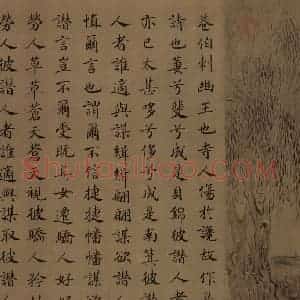 巷伯刺幽王也寺人傷於讒故作
詩也萋兮斐兮成是貝錦彼譖人者
亦已太甚哆兮侈兮成是南箕彼譖
人者誰適與謀緝緝翩翩謀欲譖
慎爾言也謂爾不信捷捷幡幡謀
譖言豈不爾受既其女遷驕人好
勞人草草蒼天蒼天視彼驕人矜
勞人彼譖人者誰適與謀取彼譖人